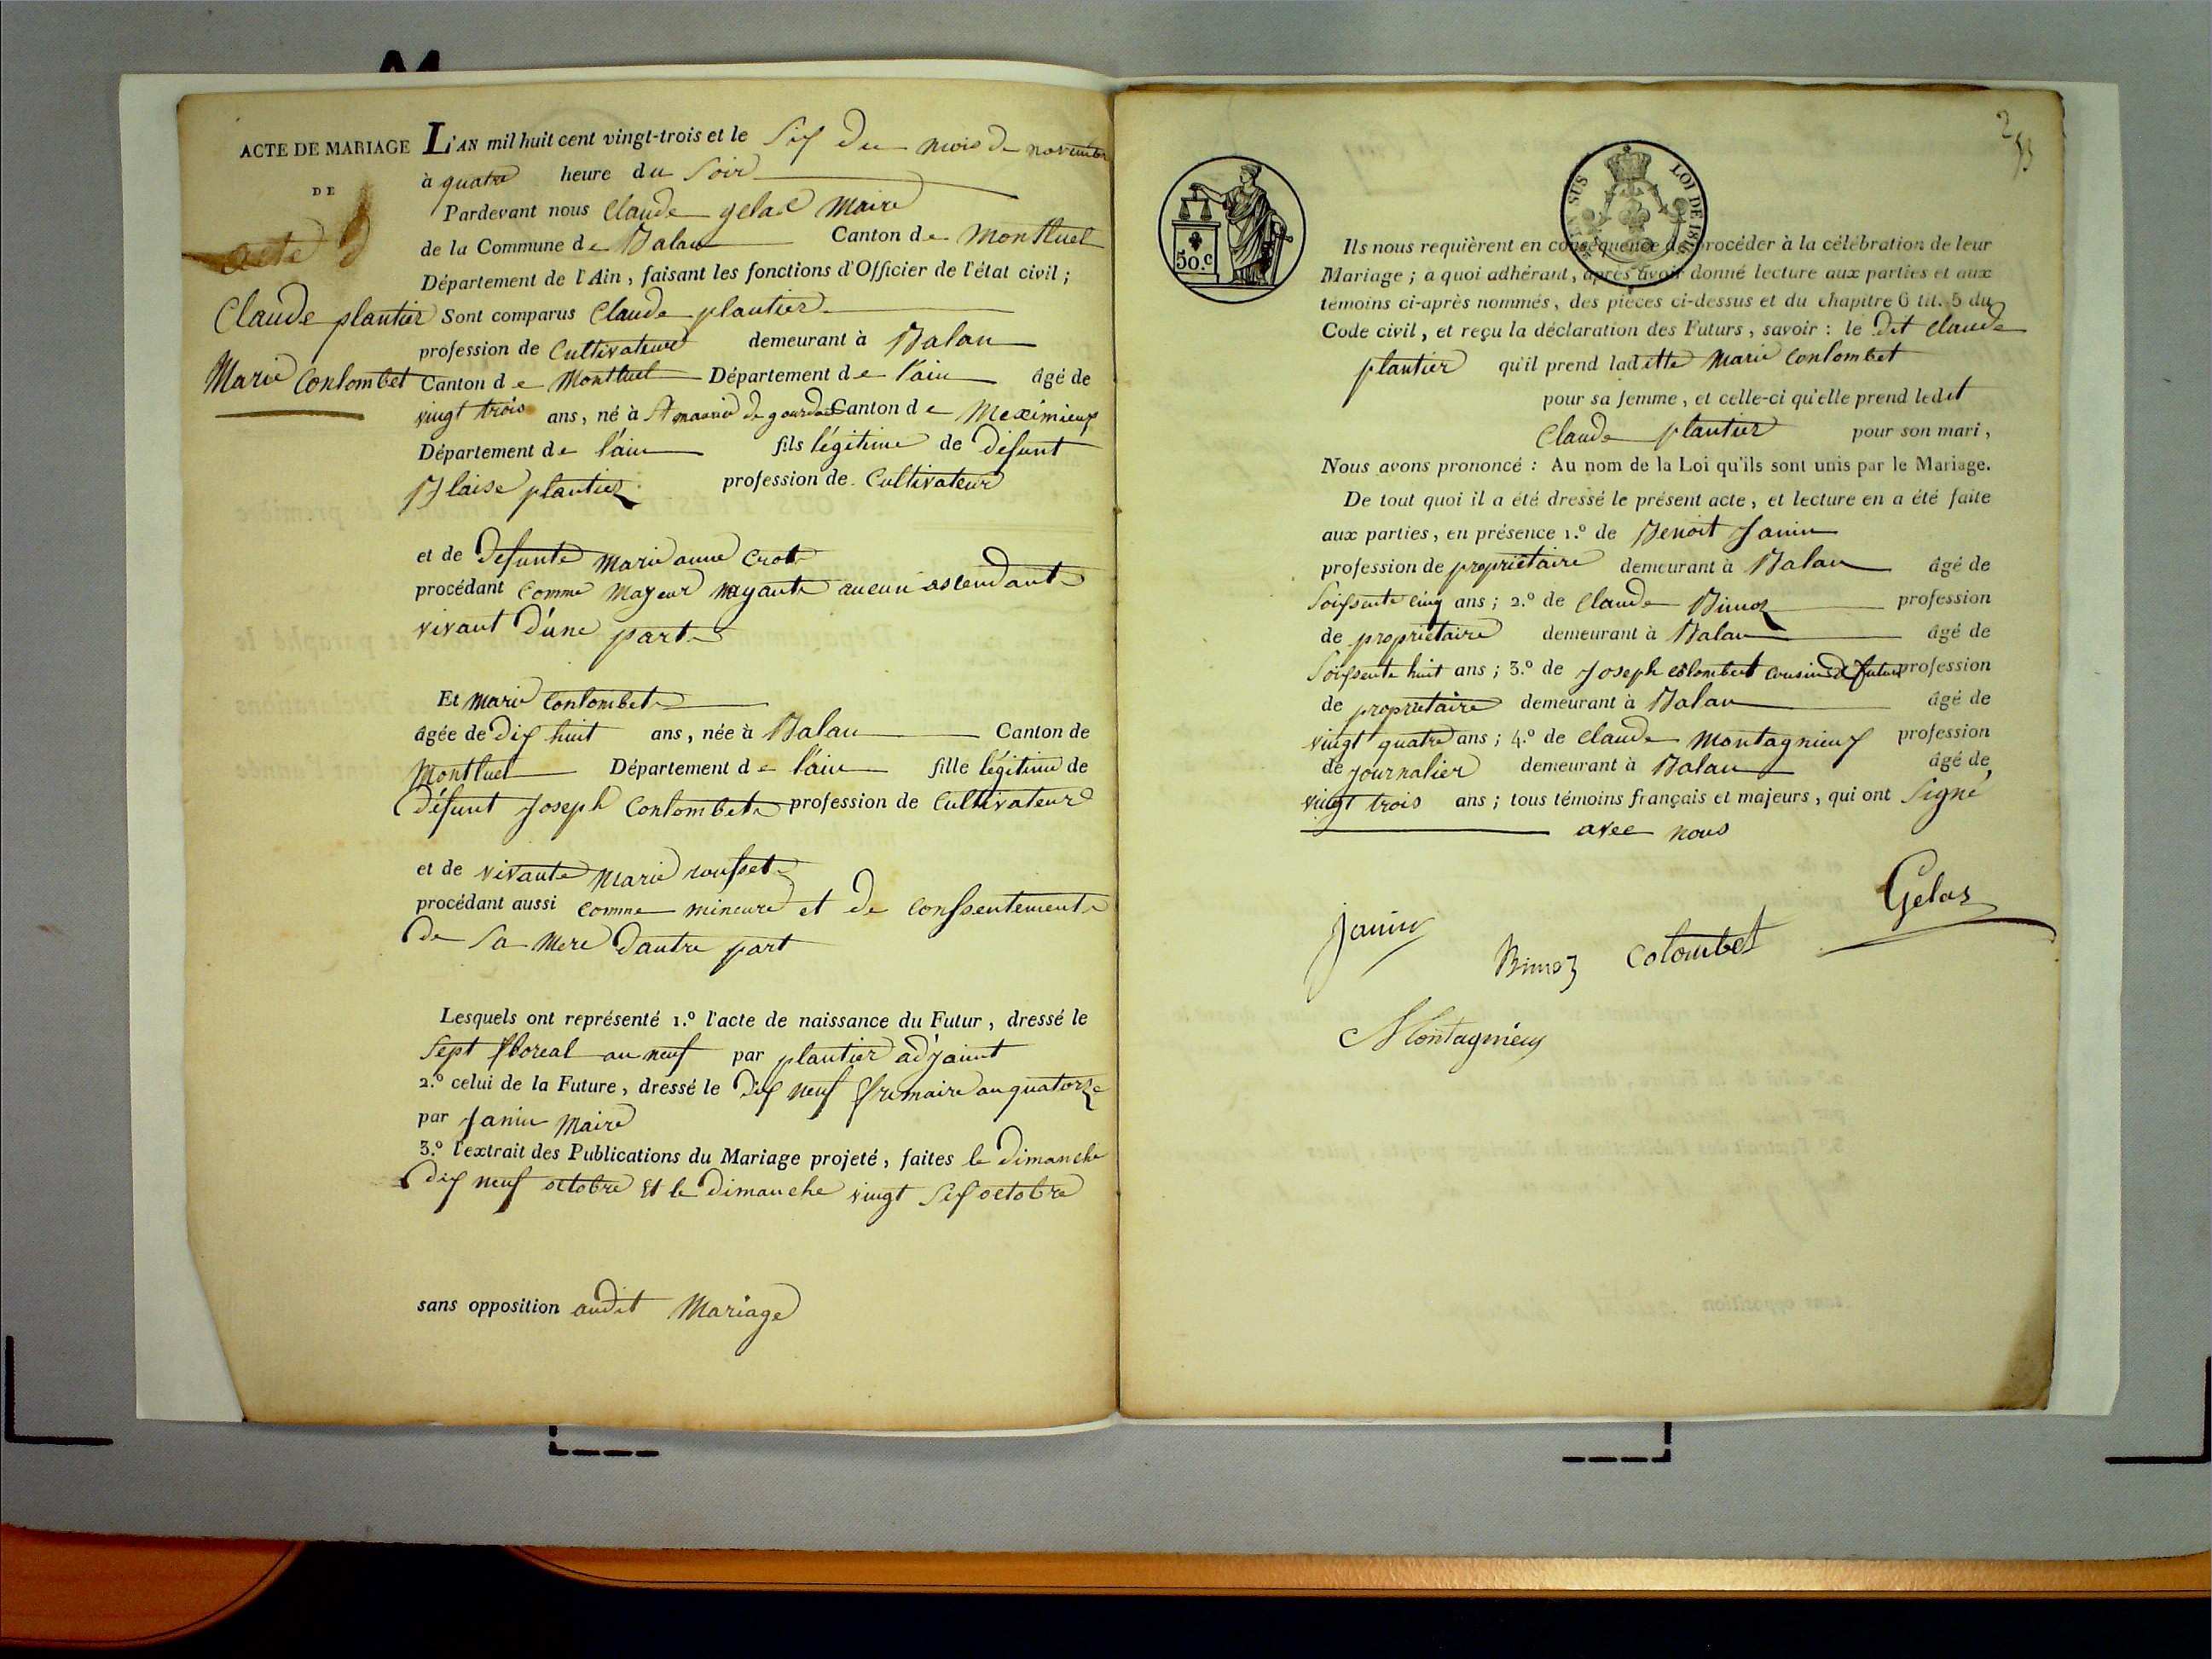 ACTE DE MARIAGE
DE
acte
Claude plantier
Marie Conlombet
L'AN mil huit cent vingt-trois et le Six du mois de novembre
à quatre heure du Soir
Pardevant nous Claude gelas Maire
de la Commune de Balan Canton de Montluel
Département de l'Ain, faisant les fonctions d'Officier de l'état civil ;
Sont comparus Claude plantier
profession de Cultivateur demeurant à Balan
Canton de Montluel Département de l'ain âgé de
vingt trois ans, né à St maurice de gourdans Canton de Meximieux
Département de l'ain fils légitime de défunt
Blaise plantier profession de Cultivateur
et de défunte Marie anne Crot
procédant Comme Mayeur nayant aucun ascendant
vivant d'une part
Et Marie Conlombet
âgée de dix huit ans, née à Balan Canton de
Montluel Département de l'ain fille légitime de
Défunt Joseph Conlombet profession de Cultivateur
et de vivante Marie rousset
procédant aussi comme mineure et de Conssentement
De Sa Mere Dautre part
Lesquels ont représenté 1.º l'acte de naissance du Futur, dressé le
Sept floreal an neuf par plantier adjoint
2.º celui de la Future, dressé le Dix neuf frimaire an quatorze
par Janin Maire
3.º l'extrait des Publications du Mariage projeté, faites le Dimanche
dix neuf octobre Et le Dimanche vingt Six octobre
sans opposition audit Mariage
50.c
LOI DE 181
Ils nous requièrent en conséquence de procéder à la célébration de leur
Mariage ; a quoi adhérant, après avoir donné lecture aux parties et aux
témoins ci-après nommés, des pièces ci-dessus et du chapitre 6 tit. 5 du
Code civil, et reçu la déclaration des Futurs, savoir : le dit claude
plantier qu'il prend laditte Marie Conlombet
pour sa femme, et celle-ci qu'elle prend ledit
Claude plantier pour son mari,
Nous avons prononcé : Au nom de la Loi qu'ils sont unis par le Mariage.
De tout quoi il a été dressé le présent acte, et lecture en a été faite
aux parties, en présence 1.º de Benoit Janin
profession de propriétaire demeurant à Balan âgé de
Soissente cinq ans ; 2.º de Claude Bimoz profession
de propriétaire demeurant à Balan âgé de
Soissente huit ans ; 3.º de Joseph Colombet Cousin d futur profession
de propriétaire demeurant à Balan âgé de
vingt quatre ans ; 4.º de Claude Montagnieux profession
de Journalier demeurant à Balan âgé de
vingt trois ans ; tous témoins français et majeurs, qui ont Signé
avec nous
Gelas
Janin
Bimoz Colombet
Montagnieux